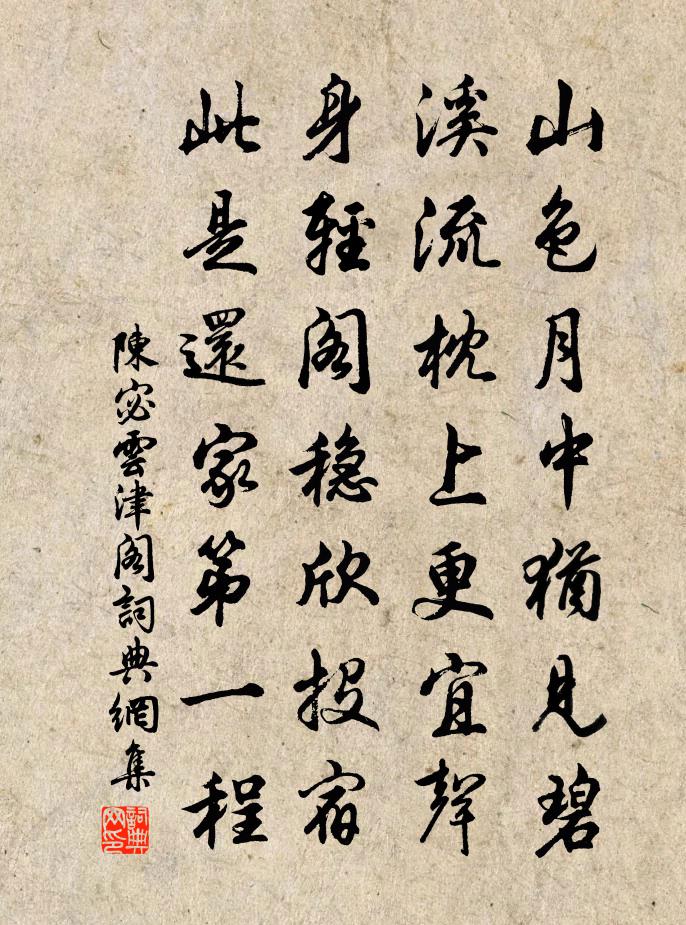 山色月中猶見碧
溪流枕上更宜聲
身輕閣穩欣投宿
此是還家第一程
陳宓雲津閣詞典網集
詞典網印